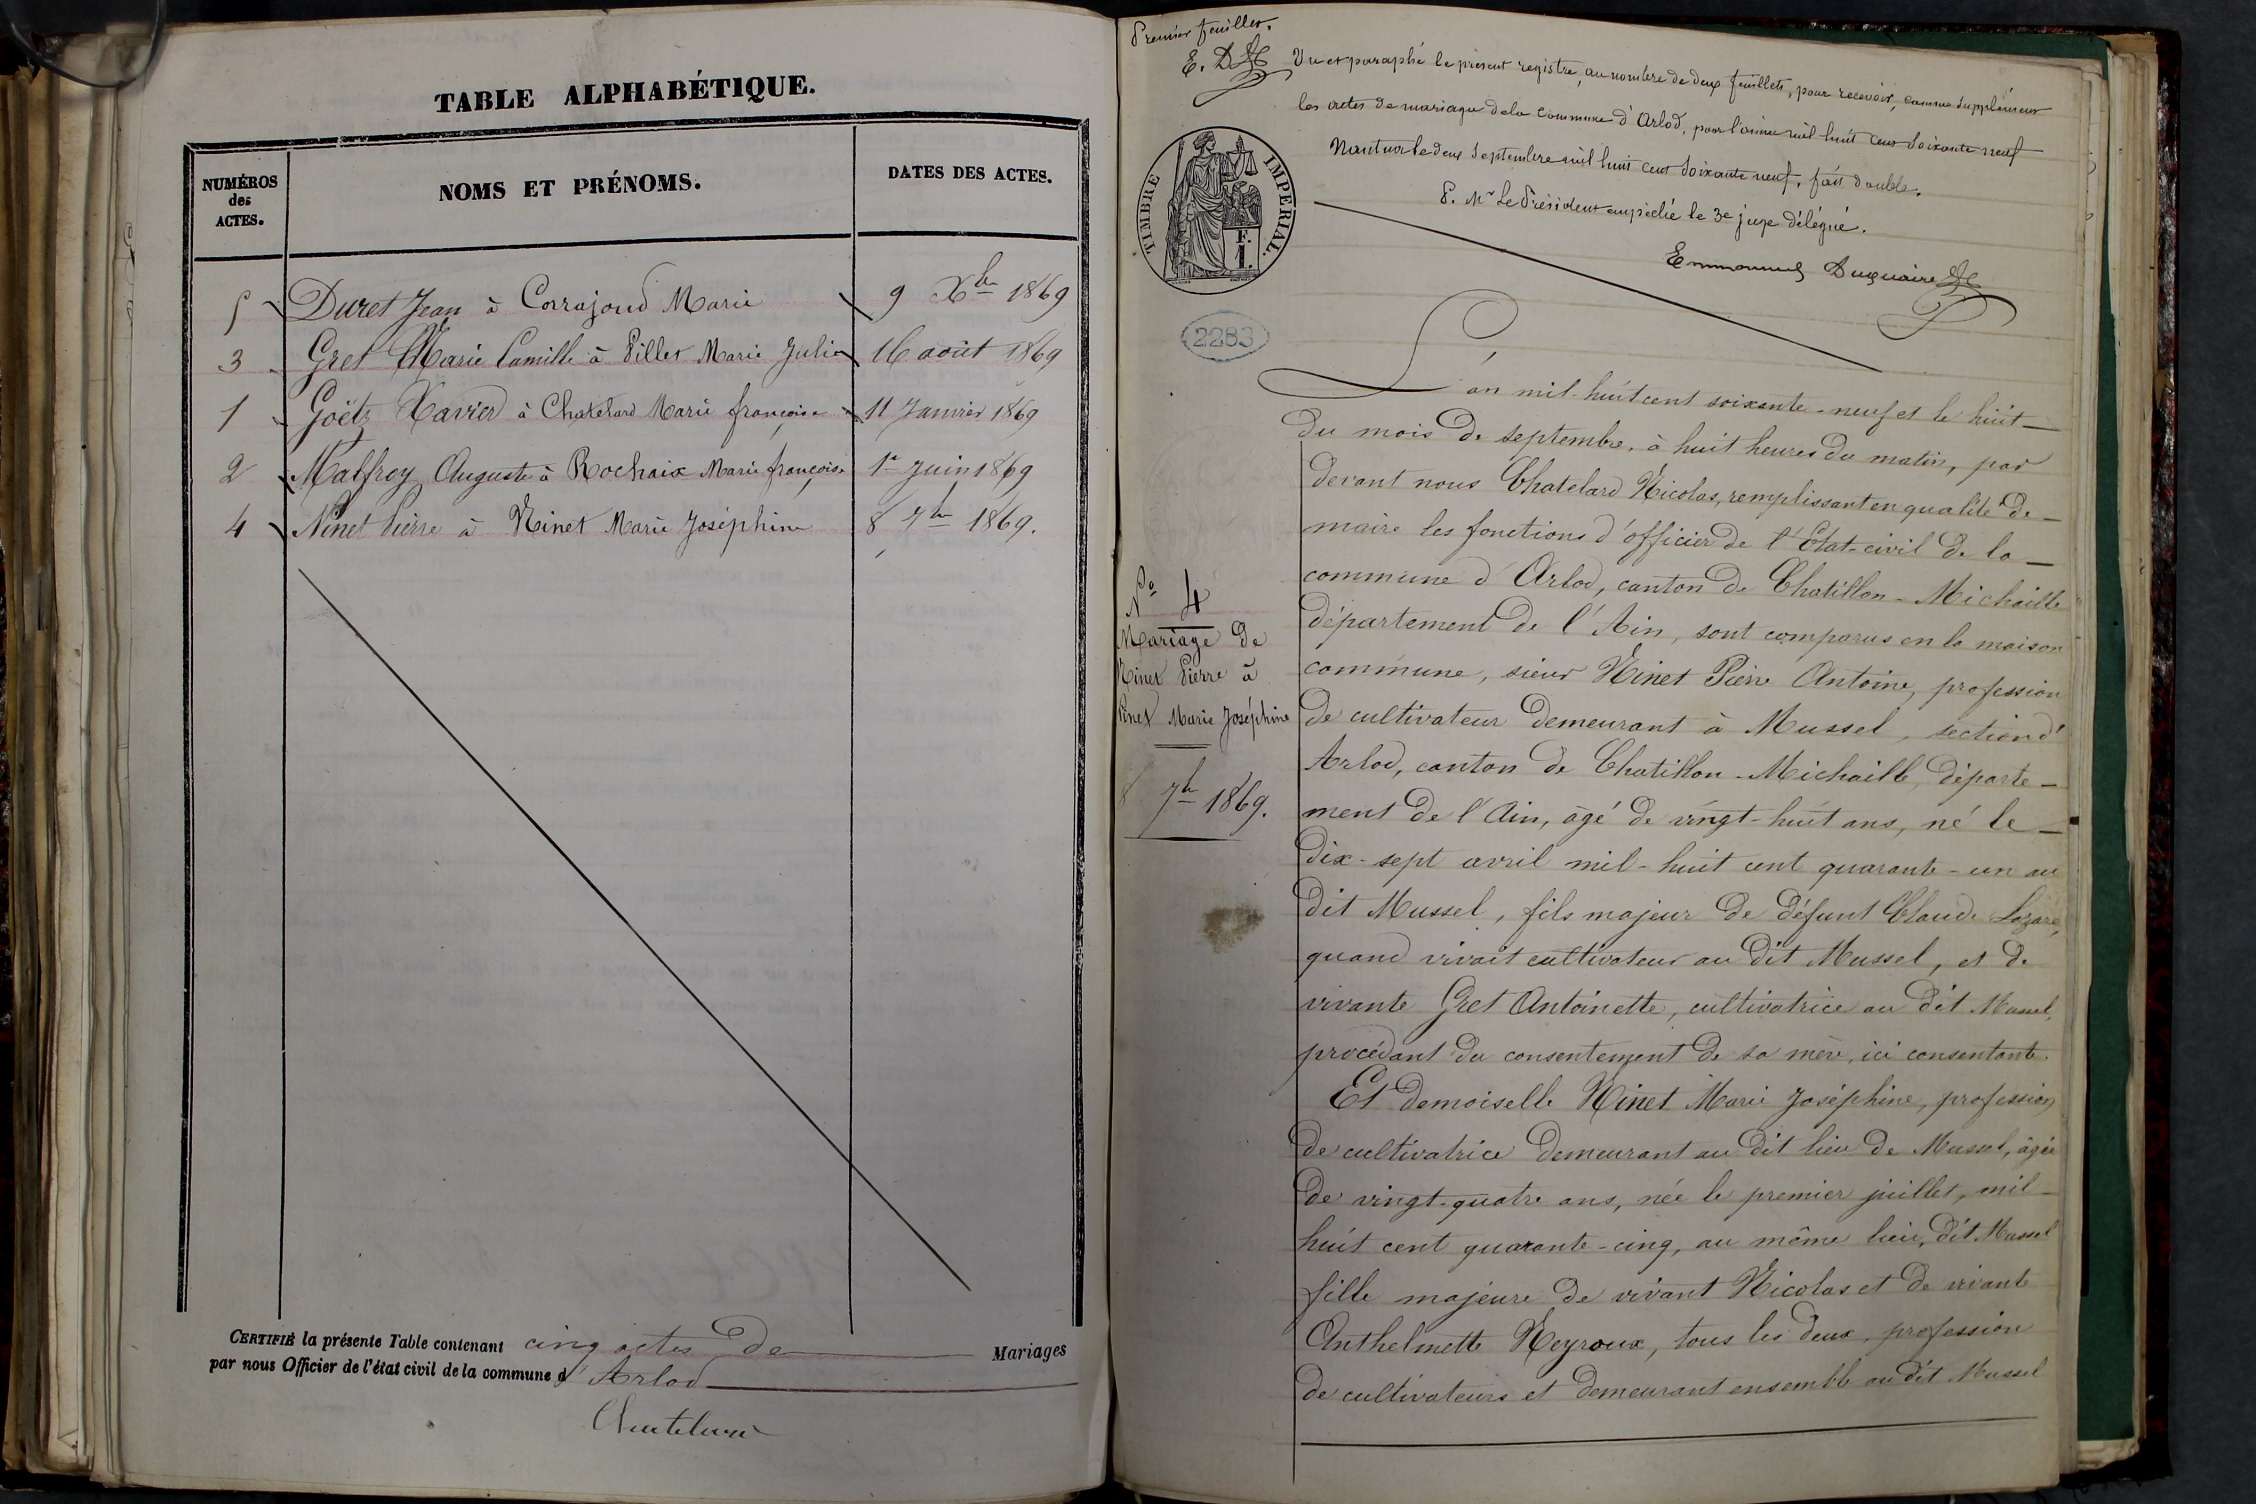 TABLE ALPHABÉTIQUE.
NUMÉROS
des
ACTES.
NOMS ET PRÉNOMS.
DATES DES ACTES.
5 Duret Jean à Corrajoud Marie 9 Xbre 1869
3 Gret Marie Camille à Pillet Marie Julie 16 août 1869
1 Goëtz Xavier à Chatelard Marie françoise 11 Janvier 1869
2 Malfroy Auguste à Rochaix Marie françoise 1er Juin 1869
4 Ninet Pierre à Ninet Marie Joséphine 8 7bre 1869.
CERTIFIÉ la présente Table contenant cinq actes de Mariages
par nous Officier de l'état civil de la commune d'Arlod
Chatelard
Premier feuillet.
E. D
Vu et paraphé le présent registre, au nombre de deux feuillets, pour recevoir, comme supplément
les actes de mariage de la commune d'Arlod, pour l'année mil huit cent soixante neuf
Nantua le deux Septembre mil huit cent soixante neuf. fait double.
P. Mr Le Président empêché le 3e juge délégué.
Emmanuel Duquaire
TIMBRE IMPERIAL.
F.
1.
2283
L'an mil-huit cent soixante-neuf et le huit
du mois de septembre, à huit heures du matin, par
devant nous Chatelard Nicolas, remplissant en qualité de
maire les fonctions d'officier de l'État-civil de la
commune d'Arlod, canton de Chatillon-Michaille
département de l'Ain, sont comparus en la maison
commune, sieur Ninet Pierre Antoine, profession
de cultivateur demeurant à Mussel, section d'
Arlod, canton de Chatillon-Michaille, départe-
ment de l'Ain, âgé de vingt-huit ans, né le
dix-sept avril mil-huit cent quarante-un au
dit Mussel, fils majeur de défunt Claude Lazare,
quand vivait cultivateur au dit Mussel, et de
vivante Gret Antoinette, cultivatrice au dit Mussel,
procédant du consentement de sa mère, ici consentante.
Et demoiselle Ninet Marie Joséphine, profession
de cultivatrice demeurant au dit lieu de Mussel, âgée
de vingt-quatre ans, née le premier juillet, mil-
huit cent quarante-cinq, au même lieu, dit Mussel
fille majeure de vivant Nicolas et de vivante
Anthelmette Neyroux, tous les deux, profession
de cultivateurs et demeurant ensemble au dit Mussel
No 4
Mariage de
Ninet Pierre à
Ninet Marie Joséphine
8 7bre 1869.